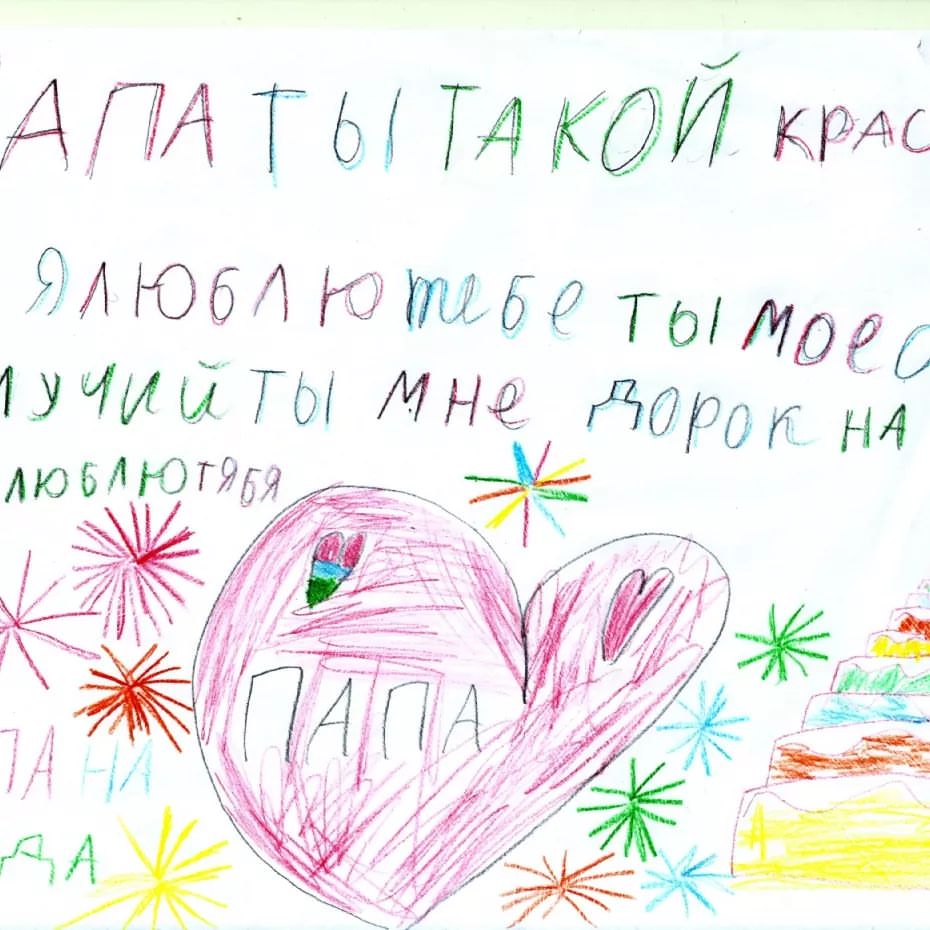 АПА ТЫ ТАКОЙ КРАС
Я ЛЮБЛЮ тебе ТЫ МОЕО
ЛУЧИЙ ТЫ МНЕ ДОРОК НА
ЛЮБЛЮ ТЯБЯ
ПАПА
ПА НА
ДА